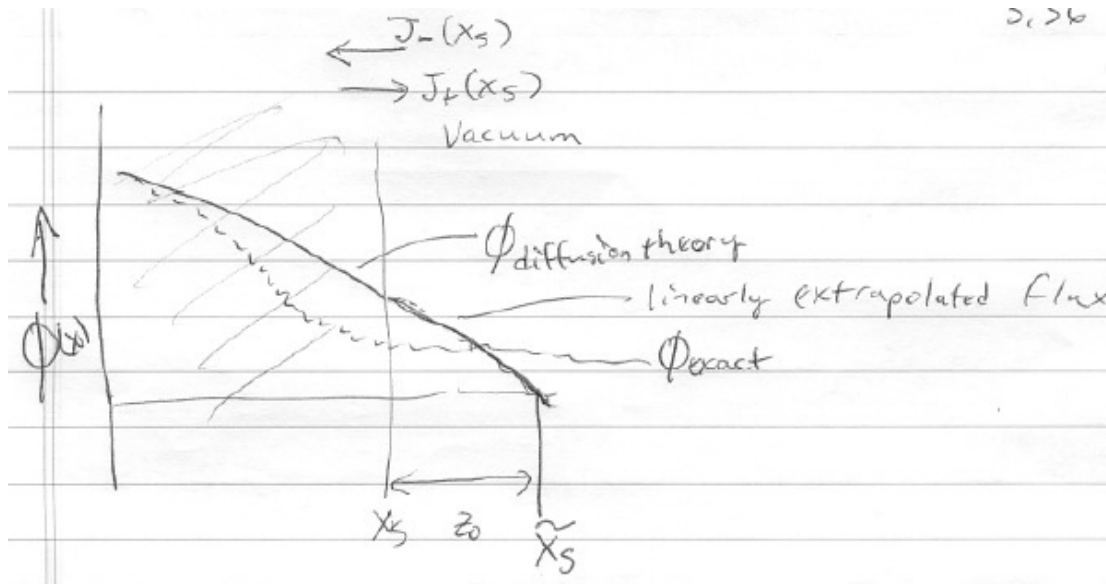 3.36
J-(xs)
J+(xs)
Vacuum
ϕdiffusion theory
linearly extrapolated flux
ϕ(x)
ϕexact
xs
z0
x̃s